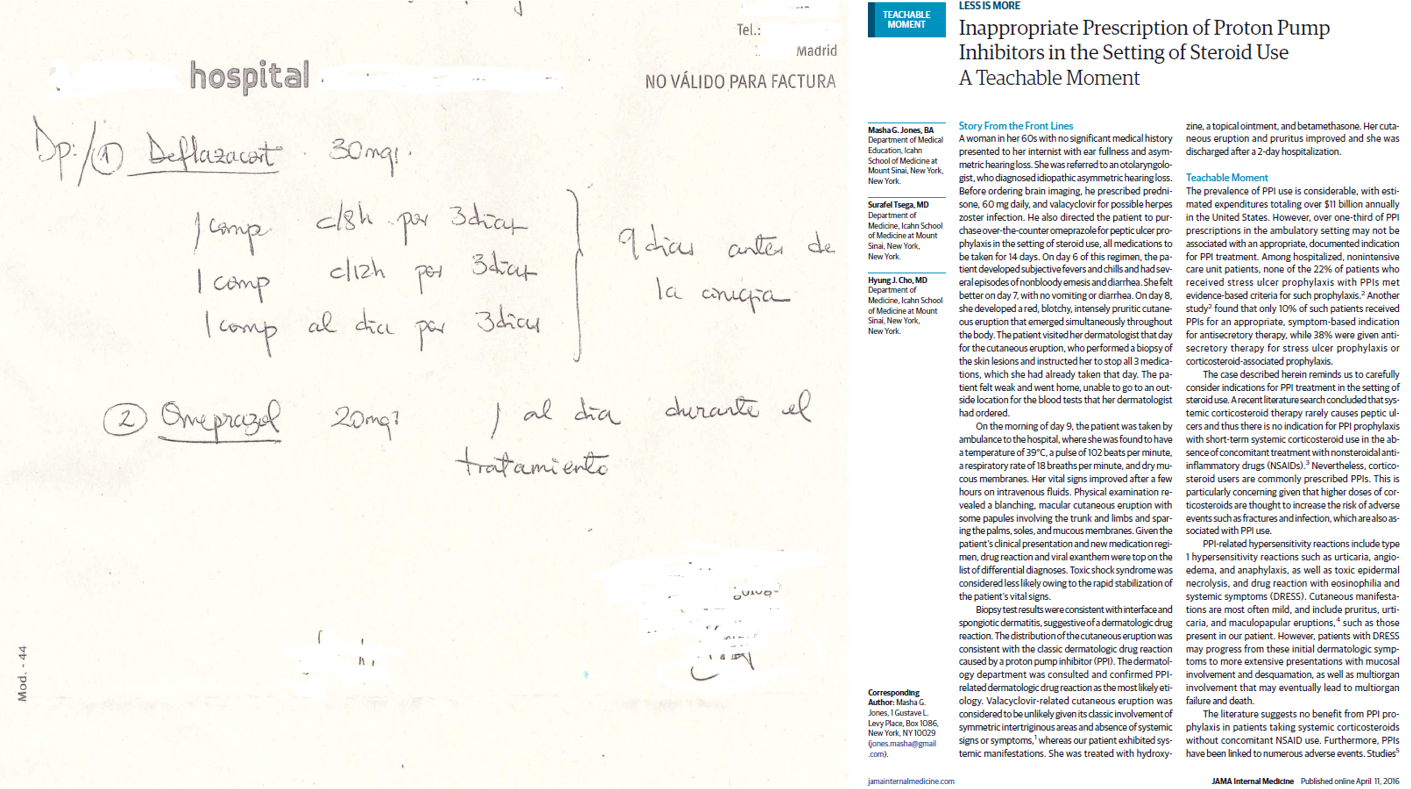 Tel.:
Madrid
hospital
NO VÁLIDO PARA FACTURA
Dp:/ ① Deflazacort 30mg.
1 comp c/8h por 3 días
1 comp c/12h por 3 días
1 comp al día por 3 días
9 días antes de
la cirugía
② Omeprazol 20mg 1 al día durante el
tratamiento
Mod. - 44
TEACHABLE
MOMENT
LESS IS MORE
Inappropriate Prescription of Proton Pump
Inhibitors in the Setting of Steroid Use
A Teachable Moment
Masha G. Jones, BA
Department of Medical
Education, Icahn
School of Medicine at
Mount Sinai, New York,
New York.
Surafel Tsega, MD
Department of
Medicine, Icahn School
of Medicine at Mount
Sinai, New York,
New York.
Hyung J. Cho, MD
Department of
Medicine, Icahn School
of Medicine at Mount
Sinai, New York,
New York.
Corresponding
Author: Masha G.
Jones, 1 Gustave L.
Levy Place, Box 1086,
New York, NY 10029
(jones.masha@gmail
.com).
Story From the Front Lines
A woman in her 60s with no significant medical history
presented to her internist with ear fullness and asym-
metric hearing loss. She was referred to an otolaryngolo-
gist, who diagnosed idiopathic asymmetric hearing loss.
Before ordering brain imaging, he prescribed predni-
sone, 60 mg daily, and valacyclovir for possible herpes
zoster infection. He also directed the patient to pur-
chase over-the-counter omeprazole for peptic ulcer pro-
phylaxis in the setting of steroid use, all medications to
be taken for 14 days. On day 6 of this regimen, the pa-
tient developed subjective fevers and chills and had sev-
eral episodes of nonbloody emesis and diarrhea. She felt
better on day 7, with no vomiting or diarrhea. On day 8,
she developed a red, blotchy, intensely pruritic cutane-
ous eruption that emerged simultaneously throughout
the body. The patient visited her dermatologist that day
for the cutaneous eruption, who performed a biopsy of
the skin lesions and instructed her to stop all 3 medica-
tions, which she had already taken that day. The pa-
tient felt weak and went home, unable to go to an out-
side location for the blood tests that her dermatologist
had ordered.
On the morning of day 9, the patient was taken by
ambulance to the hospital, where she was found to have
a temperature of 39°C, a pulse of 102 beats per minute,
a respiratory rate of 18 breaths per minute, and dry mu-
cous membranes. Her vital signs improved after a few
hours on intravenous fluids. Physical examination re-
vealed a blanching, macular cutaneous eruption with
some papules involving the trunk and limbs and spar-
ing the palms, soles, and mucous membranes. Given the
patient's clinical presentation and new medication regi-
men, drug reaction and viral exanthem were top on the
list of differential diagnoses. Toxic shock syndrome was
considered less likely owing to the rapid stabilization of
the patient's vital signs.
Biopsy test results were consistent with interface and
spongiotic dermatitis, suggestive of a dermatologic drug
reaction. The distribution of the cutaneous eruption was
consistent with the classic dermatologic drug reaction
caused by a proton pump inhibitor (PPI). The dermatol-
ogy department was consulted and confirmed PPI-
related dermatologic drug reaction as the most likely eti-
ology. Valacyclovir-related cutaneous eruption was
considered to be unlikely given its classic involvement of
symmetric intertriginous areas and absence of systemic
signs or symptoms,1 whereas our patient exhibited sys-
temic manifestations. She was treated with hydroxy-
zine, a topical ointment, and betamethasone. Her cuta-
neous eruption and pruritus improved and she was
discharged after a 2-day hospitalization.
Teachable Moment
The prevalence of PPI use is considerable, with esti-
mated expenditures totaling over $11 billion annually
in the United States. However, over one-third of PPI
prescriptions in the ambulatory setting may not be
associated with an appropriate, documented indication
for PPI treatment. Among hospitalized, nonintensive
care unit patients, none of the 22% of patients who
received stress ulcer prophylaxis with PPIs met
evidence-based criteria for such prophylaxis.2 Another
study2 found that only 10% of such patients received
PPIs for an appropriate, symptom-based indication
for antisecretory therapy, while 38% were given anti-
secretory therapy for stress ulcer prophylaxis or
corticosteroid-associated prophylaxis.
The case described herein reminds us to carefully
consider indications for PPI treatment in the setting of
steroid use. A recent literature search concluded that sys-
temic corticosteroid therapy rarely causes peptic ul-
cers and thus there is no indication for PPI prophylaxis
with short-term systemic corticosteroid use in the ab-
sence of concomitant treatment with nonsteroidal anti-
inflammatory drugs (NSAIDs).3 Nevertheless, cortico-
steroid users are commonly prescribed PPIs. This is
particularly concerning given that higher doses of cor-
ticosteroids are thought to increase the risk of adverse
events such as fractures and infection, which are also as-
sociated with PPI use.
PPI-related hypersensitivity reactions include type
1 hypersensitivity reactions such as urticaria, angio-
edema, and anaphylaxis, as well as toxic epidermal
necrolysis, and drug reaction with eosinophilia and
systemic symptoms (DRESS). Cutaneous manifesta-
tions are most often mild, and include pruritus, urti-
caria, and maculopapular eruptions,4 such as those
present in our patient. However, patients with DRESS
may progress from these initial dermatologic symp-
toms to more extensive presentations with mucosal
involvement and desquamation, as well as multiorgan
involvement that may eventually lead to multiorgan
failure and death.
The literature suggests no benefit from PPI pro-
phylaxis in patients taking systemic corticosteroids
without concomitant NSAID use. Furthermore, PPIs
have been linked to numerous adverse events. Studies5
jamainternalmedicine.com
JAMA Internal Medicine Published online April 11, 2016